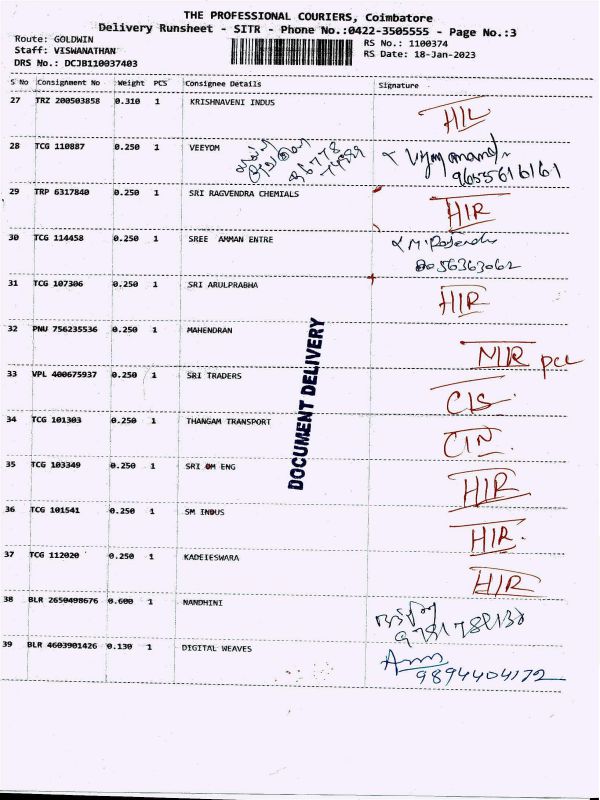 THE PROFESSIONAL COURIERS, Coimbatore
Delivery Runsheet - SITR - Phone No.:0422-3505555 - Page No.:3
Route: GOLDWIN
Staff: VISWANATHAN
DRS No.: DCJB110037403
RS No.: 1100374
RS Date: 18-Jan-2023
S No Consignment No Weight PCS Consignee Details Signature
27 TRZ 200503858 0.310 1 KRISHNAVENI INDUS
28 TCG 110887 0.250 1 VEEYOM 9655616161
29 TRP 6317840 0.250 1 SRI RAGVENDRA CHEMIALS HIR
30 TCG 114458 0.250 1 SREE AMMAN ENTRE
31 TCG 107306 0.250 1 SRI ARULPRABHA HIR
32 PNU 756235536 0.250 1 MAHENDRAN
33 VPL 400675937 0.250 1 SRI TRADERS
34 TCG 101303 0.250 1 THANGAM TRANSPORT
35 TCG 103349 0.250 1 SRI OM ENG HIR
36 TCG 101541 0.250 1 SM INDUS HIR.
37 TCG 112020 0.250 1 KADEIESWARA HIR
38 BLR 2650498676 0.600 1 NANDHINI
39 BLR 4603901426 0.130 1 DIGITAL WEAVES 9894404172
DOCUMENT DELIVERY